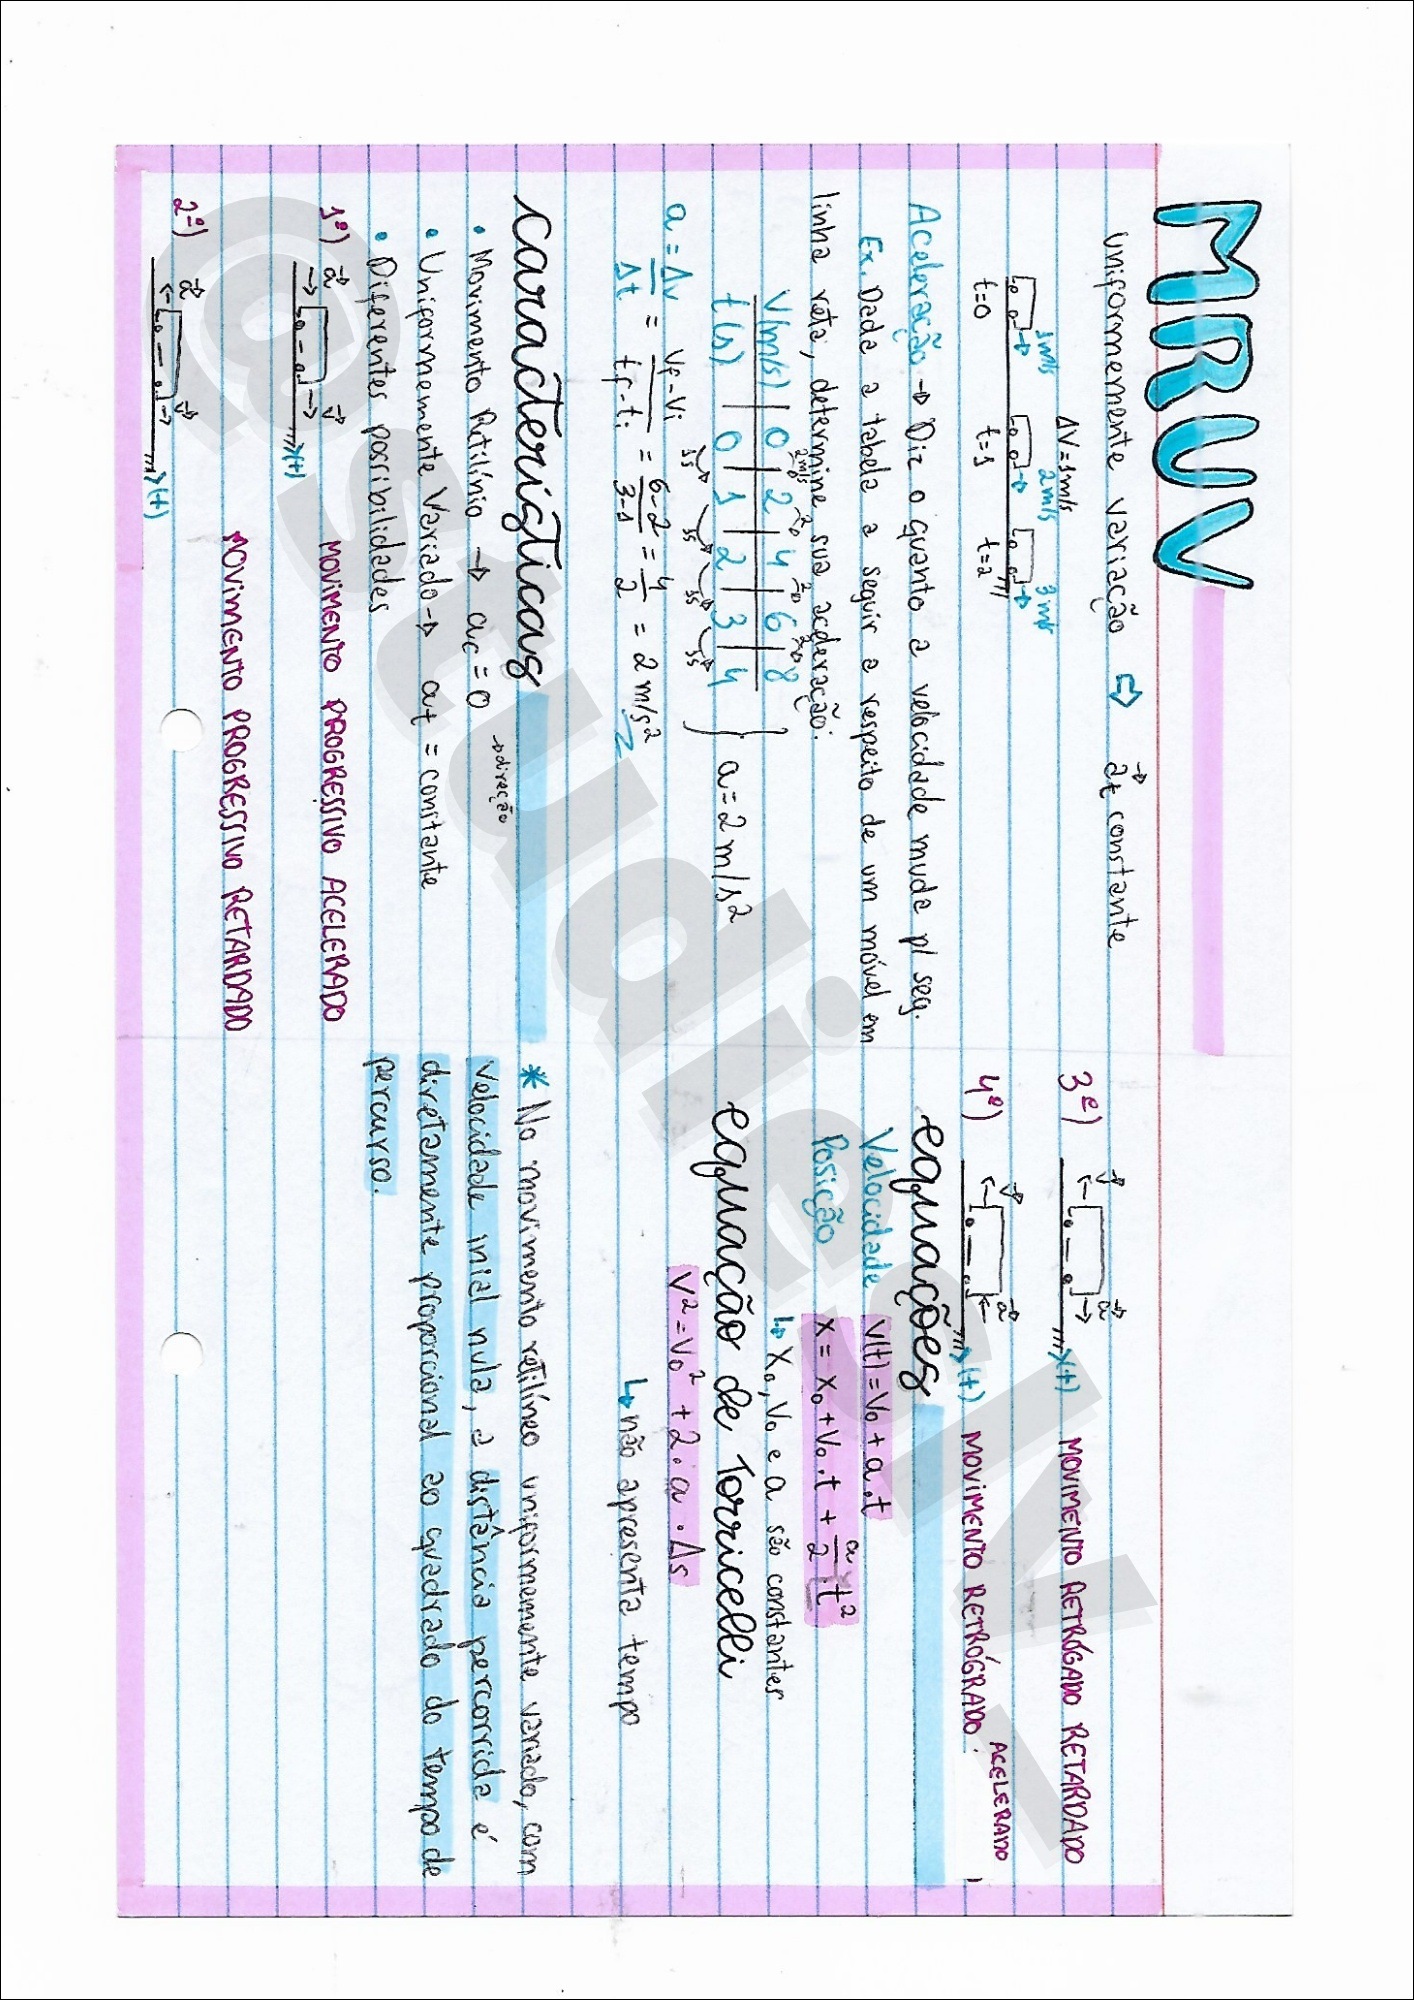 MRUV
Uniformemente variação ⇨ a⃗t constante
ΔV=1m/s
1m/s 2m/s 3m/s
t=0 t=1 t=2
Aceleração → Diz o quanto a velocidade muda p/ seg.
Ex. Dada a tabela a seguir a respeito de um móvel em
linha reta, determine sua aceleração:
2m/s 2 2 2
V(m/s) | 0 | 2 | 4 | 6 | 8
t(s) | 0 | 1 | 2 | 3 | 4 } a=2m/s²
1s 1s 1s 1s
a = Δv/Δt = vf-vi/tf-ti = 6-2/3-1 = 4/2 = 2m/s²
características
→ direção
• Movimento Retilínio → ac = 0
• Uniformemente Variado → at = constante
• Diferentes possibilidades
1º) a⃗ v⃗ (+) MOVIMENTO PROGRESSIVO ACELERADO
MOVIMENTO PROGRESSIVO RETARDADO
2º) a⃗ v⃗ (+)
3º) v⃗ a⃗ (+) MOVIMENTO RETRÓGADO RETARDADO
4º) v⃗ a⃗ (+) MOVIMENTO RETRÓGRADO ACELERADO
equações
Velocidade v(t) = v0 + a.t
Posição x = x0 + v0.t + a/2.t²
↳ x0, v0 e a são constantes
equação de Torricelli
V² = V0² + 2.a.Δs
↳ não apresenta tempo
* No movimento retilíneo uniformemente variado, com
velocidade inial nula, a distância percorrida é
diretamente proporcional ao quadrado do tempo de
percurso.